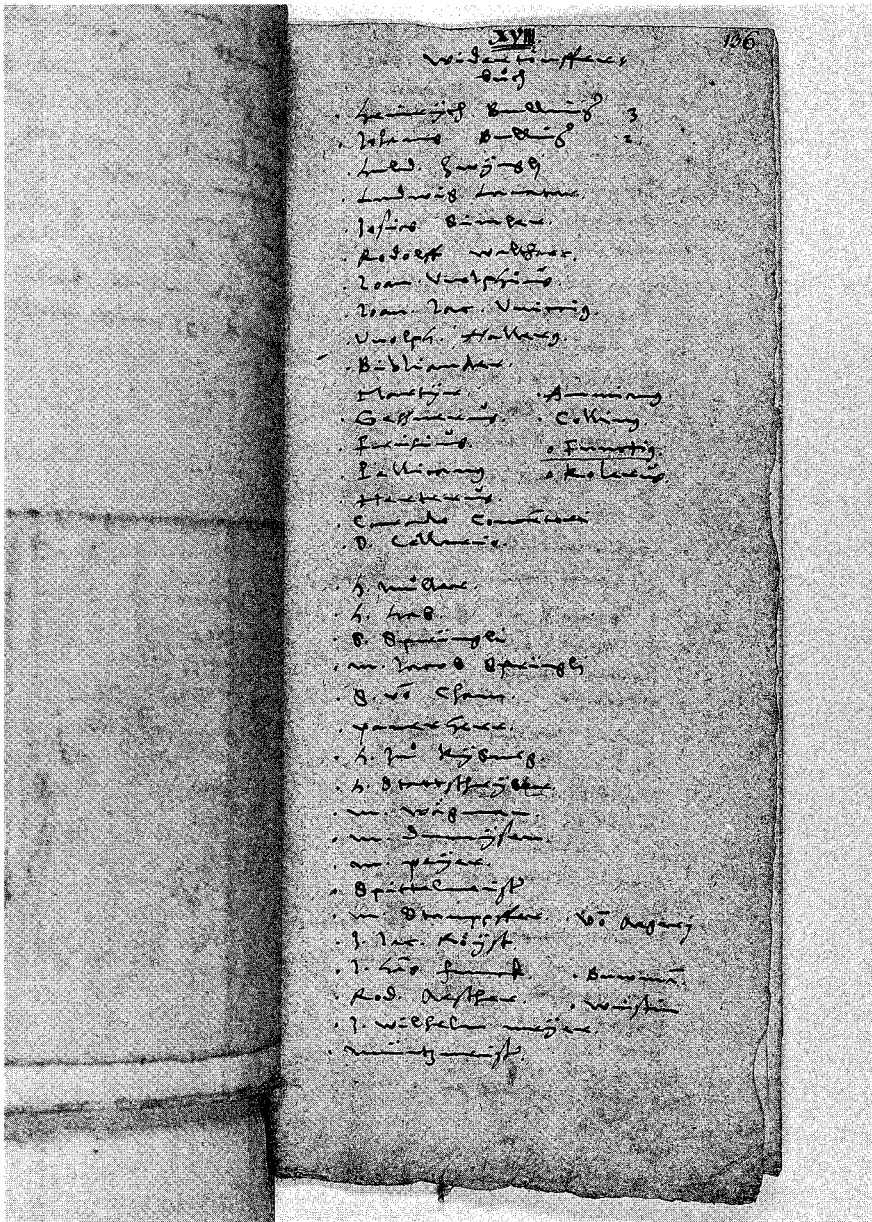 XVIII
136
Widertöuffer
büch
. Heinrych Bulling 3
. Johanns Bulling 2.
. Huld. Zwyngli
. Ludwig Lavater.
. Josias Simler.
. Rodolff Walther.
. Joan. Vuolphius.
. Joan. Jac. Vuicius.
. Vuolph. Hallerus.
. Bibliander.
. Martyr. . Ammianus.
. Gessnerus. . Collinus.
. Frisius. . Funccius.
. Pellicanus . Kolerus.
. Herterus.
. Conrado
. D. Cellario.
. H. Müller.
. H. Hab.
. B. Sprüngli
. m. Jacob Sprüngli
. B. vo Cham.
. panerherr.
. H. zu Kyburg.
. H. Stattschryber
. m. Wägman.
. m.
. m. peyer.
. Spittelmeist
. m. Stampffer . vo
. J. Jac. Röyst
. J. Hes . Buwman.
. Rod. Aescher. .
. J. Wilhelm meyer.
. müntzmeist